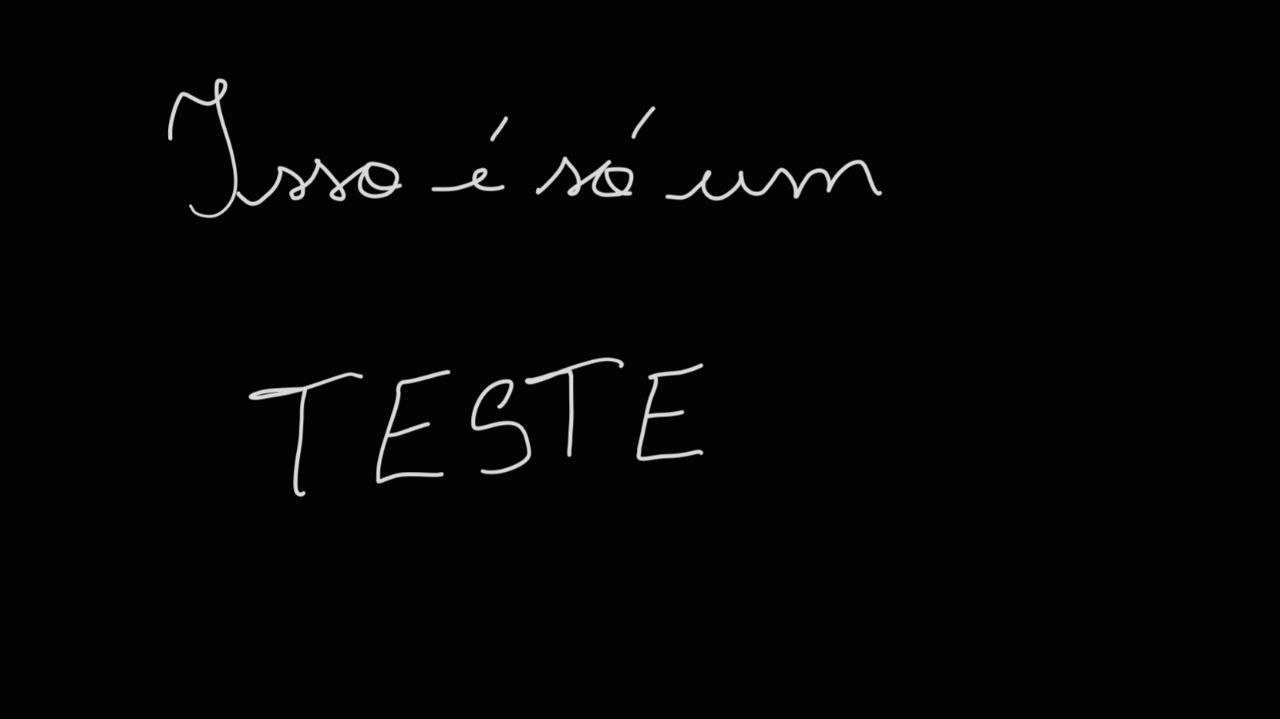 Isso é só um
TESTE